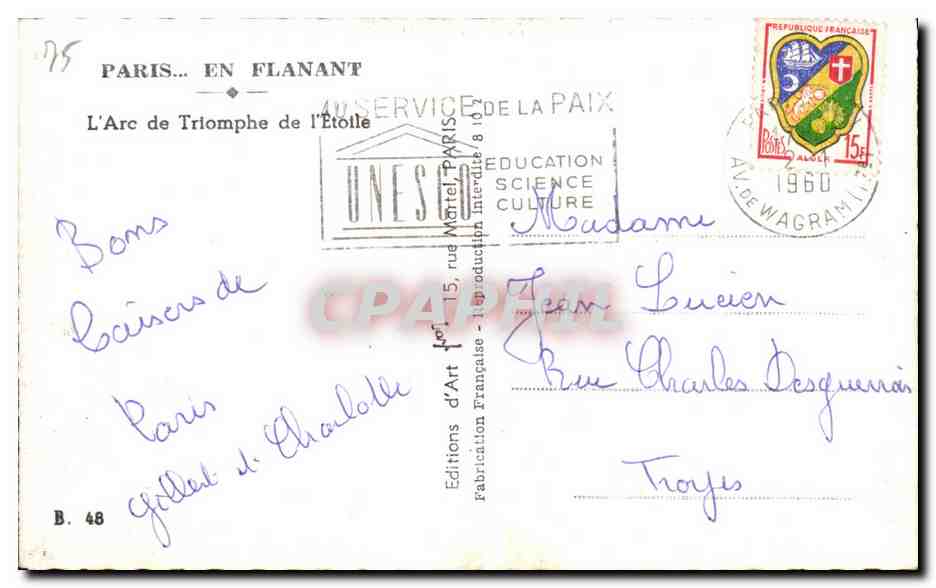 75
PARIS... EN FLANANT
L'Arc de Triomphe de l'Étoile
AU SERVICE DE LA PAIX
UNESCO
EDUCATION
SCIENCE
CULTURE
REPUBLIQUE FRANÇAISE
POSTES
ALGER
15F
1960
AV. DE WAGRAM
Bons
baisers de
Paris
Gilbert et Charlotte
B. 48
Editions d'Art 15, rue Martel, PARIS
Fabrication Française - Reproduction interdite 8 10
Madame
Jean Lucien
Rue Charles Desguerrois
Troyes
CPAPHIL